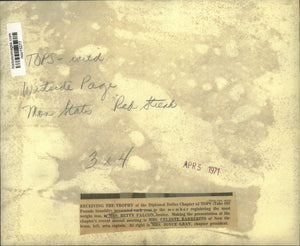 TOPS - wed
Westside Page
Mrs Slats Red Streak
3 x 4
APR 5 1971
RECEIVING THE TROPHY of the Diplomat Dallas Chapter of TOPS (Take Off
Pounds Sensibly) presented each year to the member registering the most
weight loss, is MRS. BETTY FALCON, Making the presentation at the
chapter's recent annual meeting is MRS. CELESTE of New Or-
leans, left, area captain. At right is MRS. JOYCE GRAY, chapter president.